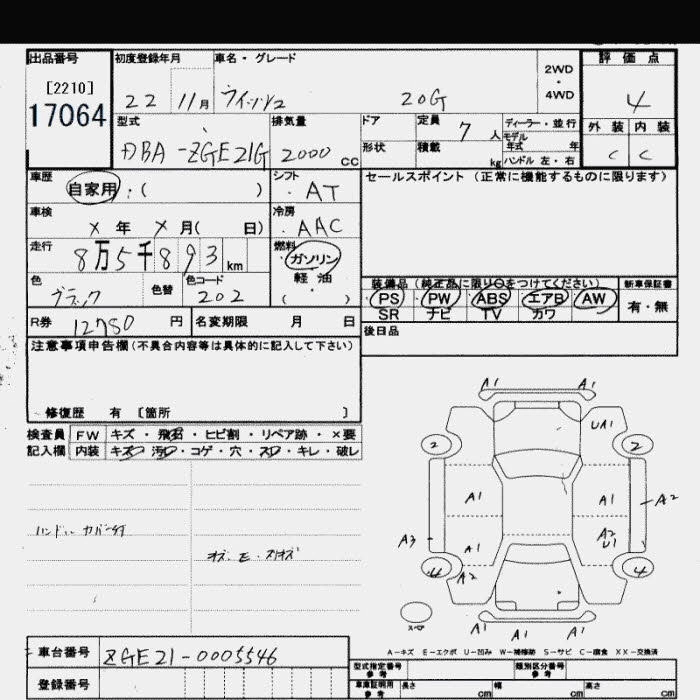 出品番号 初度登録年月 車名・グレード 評価点
[2210] 2WD・4WD
17064 22 11月 ウィッシュ 20G 4
型式 排気量 ドア 定員 7人 ディーラー・並行 外装 内装
モデル年式 年
DBA-ZGE21G 2000cc 形状 積載 kg ハンドル 左・右 C C
車歴 シフト セールスポイント (正常に機能するものに限ります)
自家用:( ) AT
車検 冷房
X年 X月( 日) AAC
走行 燃料
8万5千893km ガソリン
軽油
色 色替 色コード
ブラック 202 ( )
装備品 (純正品に限り○をつけてください) 新車保証書
PS PW ABS エアB AW 有・無
SR ナビ TV カワ
R券 12780円 名変期限 月 日 後日品
注意事項申告欄(不具合内容等は具体的に記入して下さい)
修復歴 有 [箇所 ]
検査員 FW キズ・飛石・ヒビ割・リペア跡・×要
記入欄 内装 キズ・汚・コゲ・穴・スレ・キレ・破レ
A1 A1
UA1
2 2
A1 A1 A2
A3 A1 A2
U1
4 A2 4
ハンドルカバー付
スペア
A1 A1 A1
A-キズ E-エクボ U-凹み W-補修跡 S-サビ C-腐食 XX-交換済
車台番号 ZGE21-0005546
型式指定番号 参考 類別区分番号 参考
登録番号 車庫証明用 参考 長さ cm 幅 cm 高さ cm